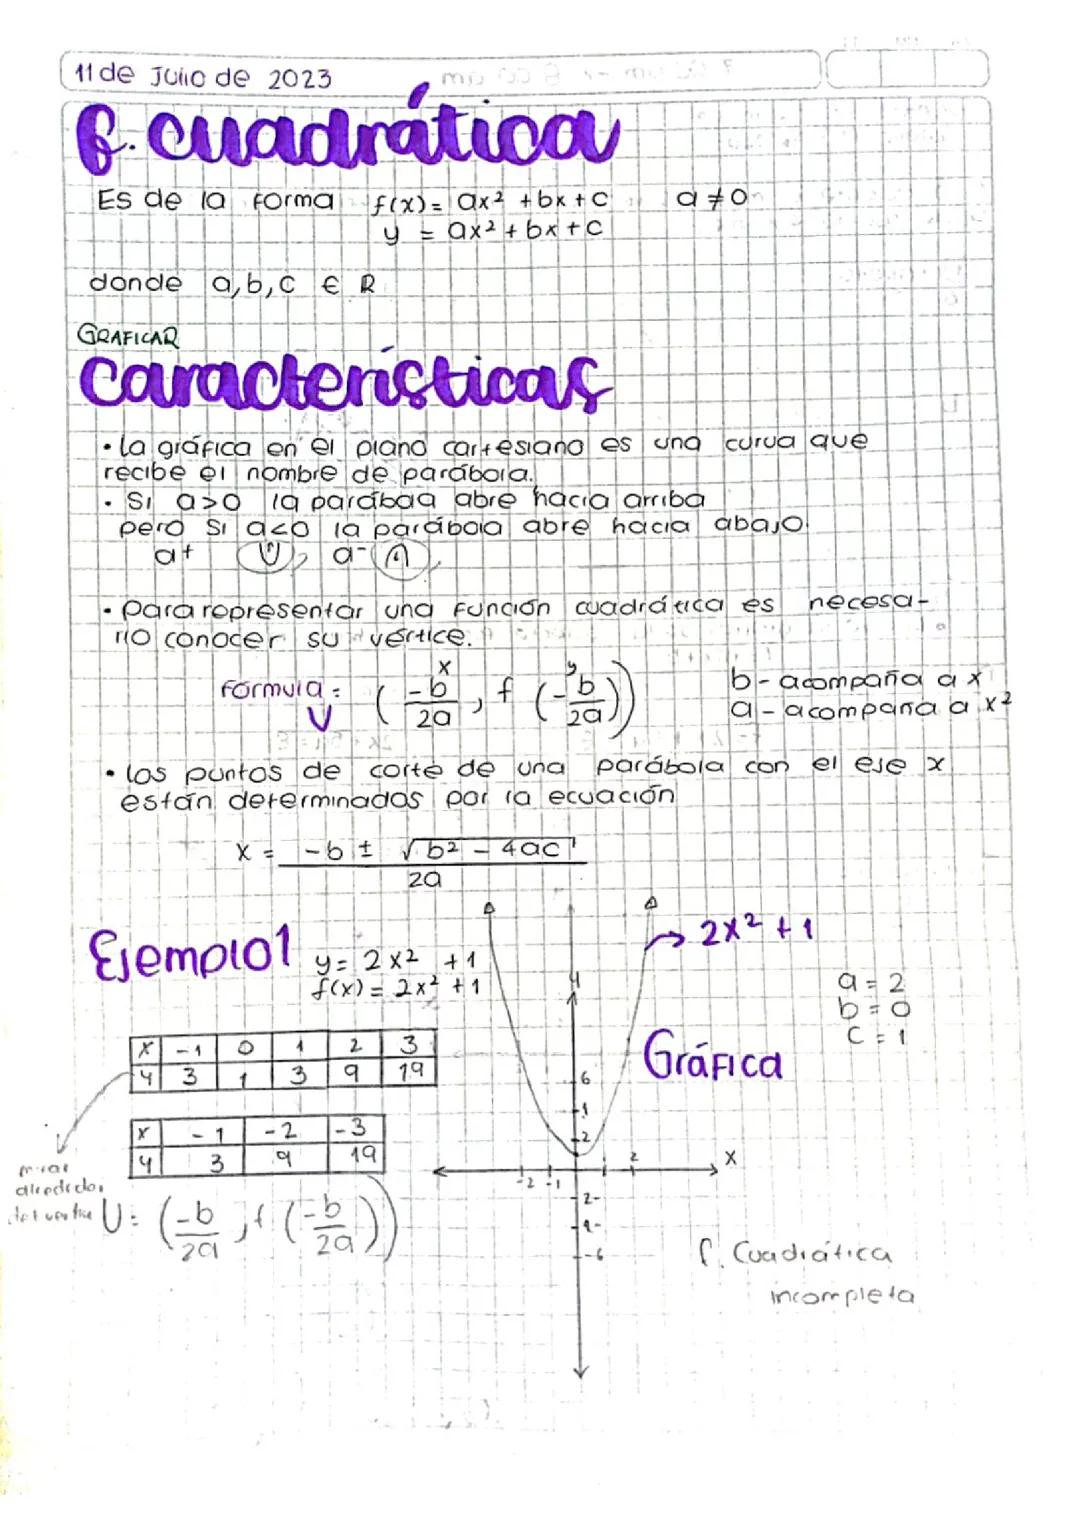 11 de Julio de 2023
f. cuadrática
Es de la forma f(x) = ax² + bx + c a ≠ 0
y = ax² + bx + c
donde a, b, c ∈ R
GRAFICAR
Características
• La gráfica en el plano cartesiano es una curva que
recibe el nombre de parábola.
• Si a>0 la parábola abre hacia arriba
pero si a<0 la parábola abre hacia abajo
a+ a-
• para representar una función cuadrática es necesa-
rio conocer su vértice.
x y
Fórmula: (-b/2a, f(-b/2a))
V
b - acompaña a x
a - acompaña a x²
• Los puntos de corte de una parábola con el eje x
están determinados por la ecuación
x = -b ± √b² - 4ac / 2a
Ejemplo 1 y = 2x² + 1
f(x) = 2x² + 1
2x² + 1
a = 2
b = 0
c = 1
Gráfica
x -1 0 1 2 3
y 3 1 3 9 19
x -1 -2 -3
y 3 9 19
alrededor
del vertice
V = (-b/2a, f(-b/2a))
6
2
-2 -1 2 x
2-
-6
f. Cuadrática
incompleta